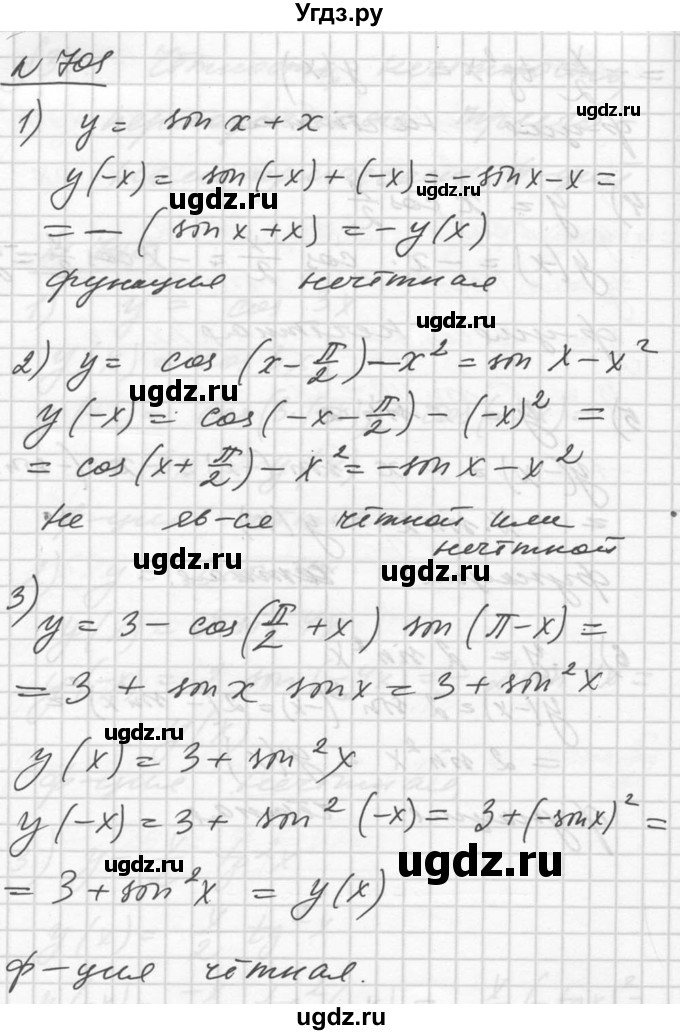 Угдз.ру
N 701
ugdz.ru
1) y = sin x + x
ugdz.ru
y(-x) = sin(-x) + (-x) = -sin x - x =
ugdz.ru ugdz.ru
= - (sin x + x) = -y(x)
функция нечётная
ugdz.ru
2) y = cos (x - π/2) - x² = sin x - x²
ugdz.ru
y(-x) = cos(-x - π/2) - (-x)² =
= cos(x + π/2) - x² = -sin x - x²
ugdz.ru
не яв-ся чётной или
нечётной
ugdz.ru ugdz.ru
3)
y = 3 - cos(π/2 + x) sin(π - x) =
= 3 + sin x sin x = 3 + sin² x
ugdz.ru
y(x) = 3 + sin² x
y(-x) = 3 + sin² (-x) = 3 + (-sin x)² =
ugdz.ru ugdz.ru
= 3 + sin² x = y(x)
ф-ция чётная.
ugdz.ru